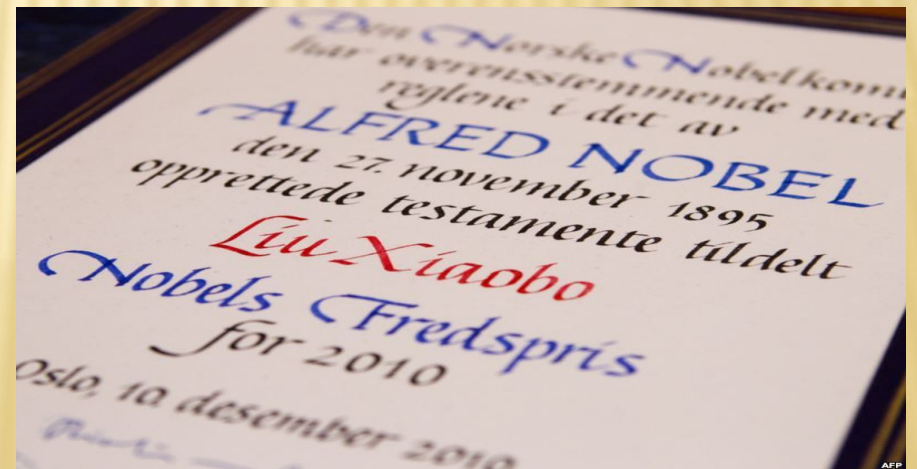 Den Norske Nobelkomi
har overensstemmende med
reglene i det av
ALFRED NOBEL
den 27. november 1895
opprettede testamente tildelt
Liu Xiaobo
Nobels Fredspris
for 2010
Oslo, 10. desember 2010
AFP